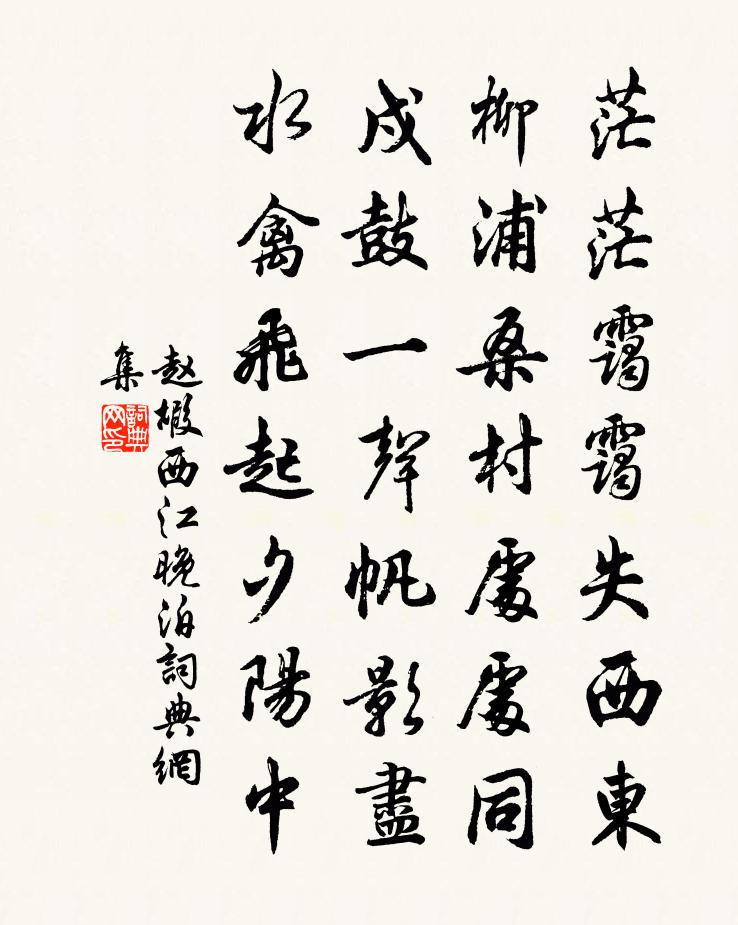 茫茫靄靄失西東
柳浦桑村處處同
戍鼓一聲帆影盡
水禽飛起夕陽中
赵嘏西江晚泊詞典網
集
詞典网印